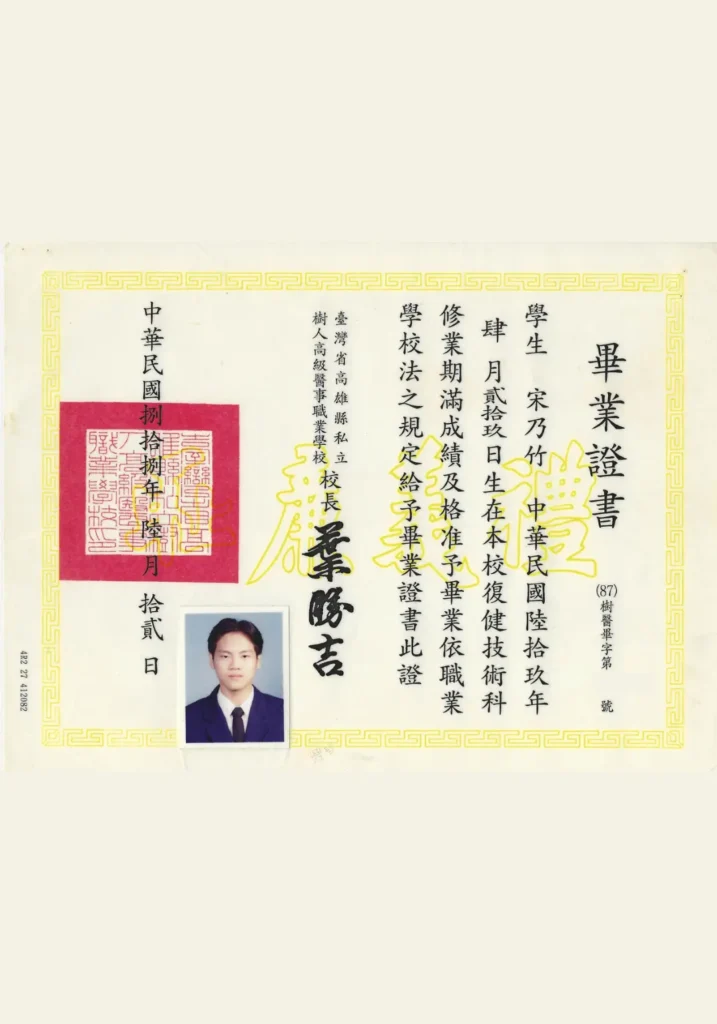 畢業證書
(87)樹醫畢字第 號
學生 宋乃竹 中華民國陸拾玖年
肆 月貳拾玖日生在本校復健技術科
修業期滿成績及格准予畢業依職業
學校法之規定給予畢業證書此證
臺灣省高雄縣私立
樹人高級醫事職業學校 校長 葉勝吉
中華民國捌拾捌年 陸 月 拾貳 日
禮義廉
4R2 27 412082